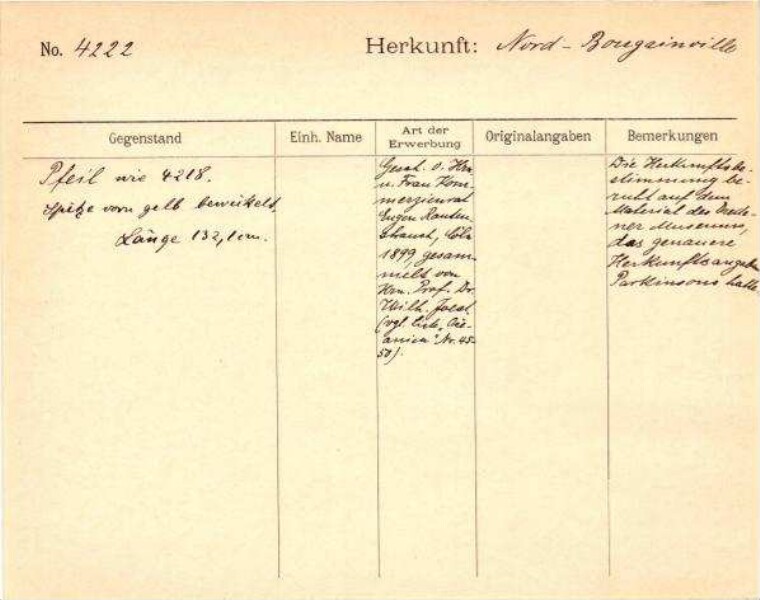 No. 4222
Herkunft: Nord-Bougainville
Gegenstand
Einh. Name
Art der Erwerbung
Originalangaben
Bemerkungen
Pfeil wie 4218.
Spitze vorn gelb bewickelt.
Länge 132,1 cm.
Gesch. v. Hrn
u. Frau Kom-
merzienrat
Eugen Rauten-
strauch, Cöln
1899, gesam-
melt von
Hrn. Prof. Dr.
Wilh. Joest.
(vgl. "Oce-
anien" Nr. 45-
50).
Die Herkunftsbe-
stimmung be-
ruht auf dem
Material des Dresde-
ner Museums,
das genauere
Herkunftsangaben
Parkinsons hatte.